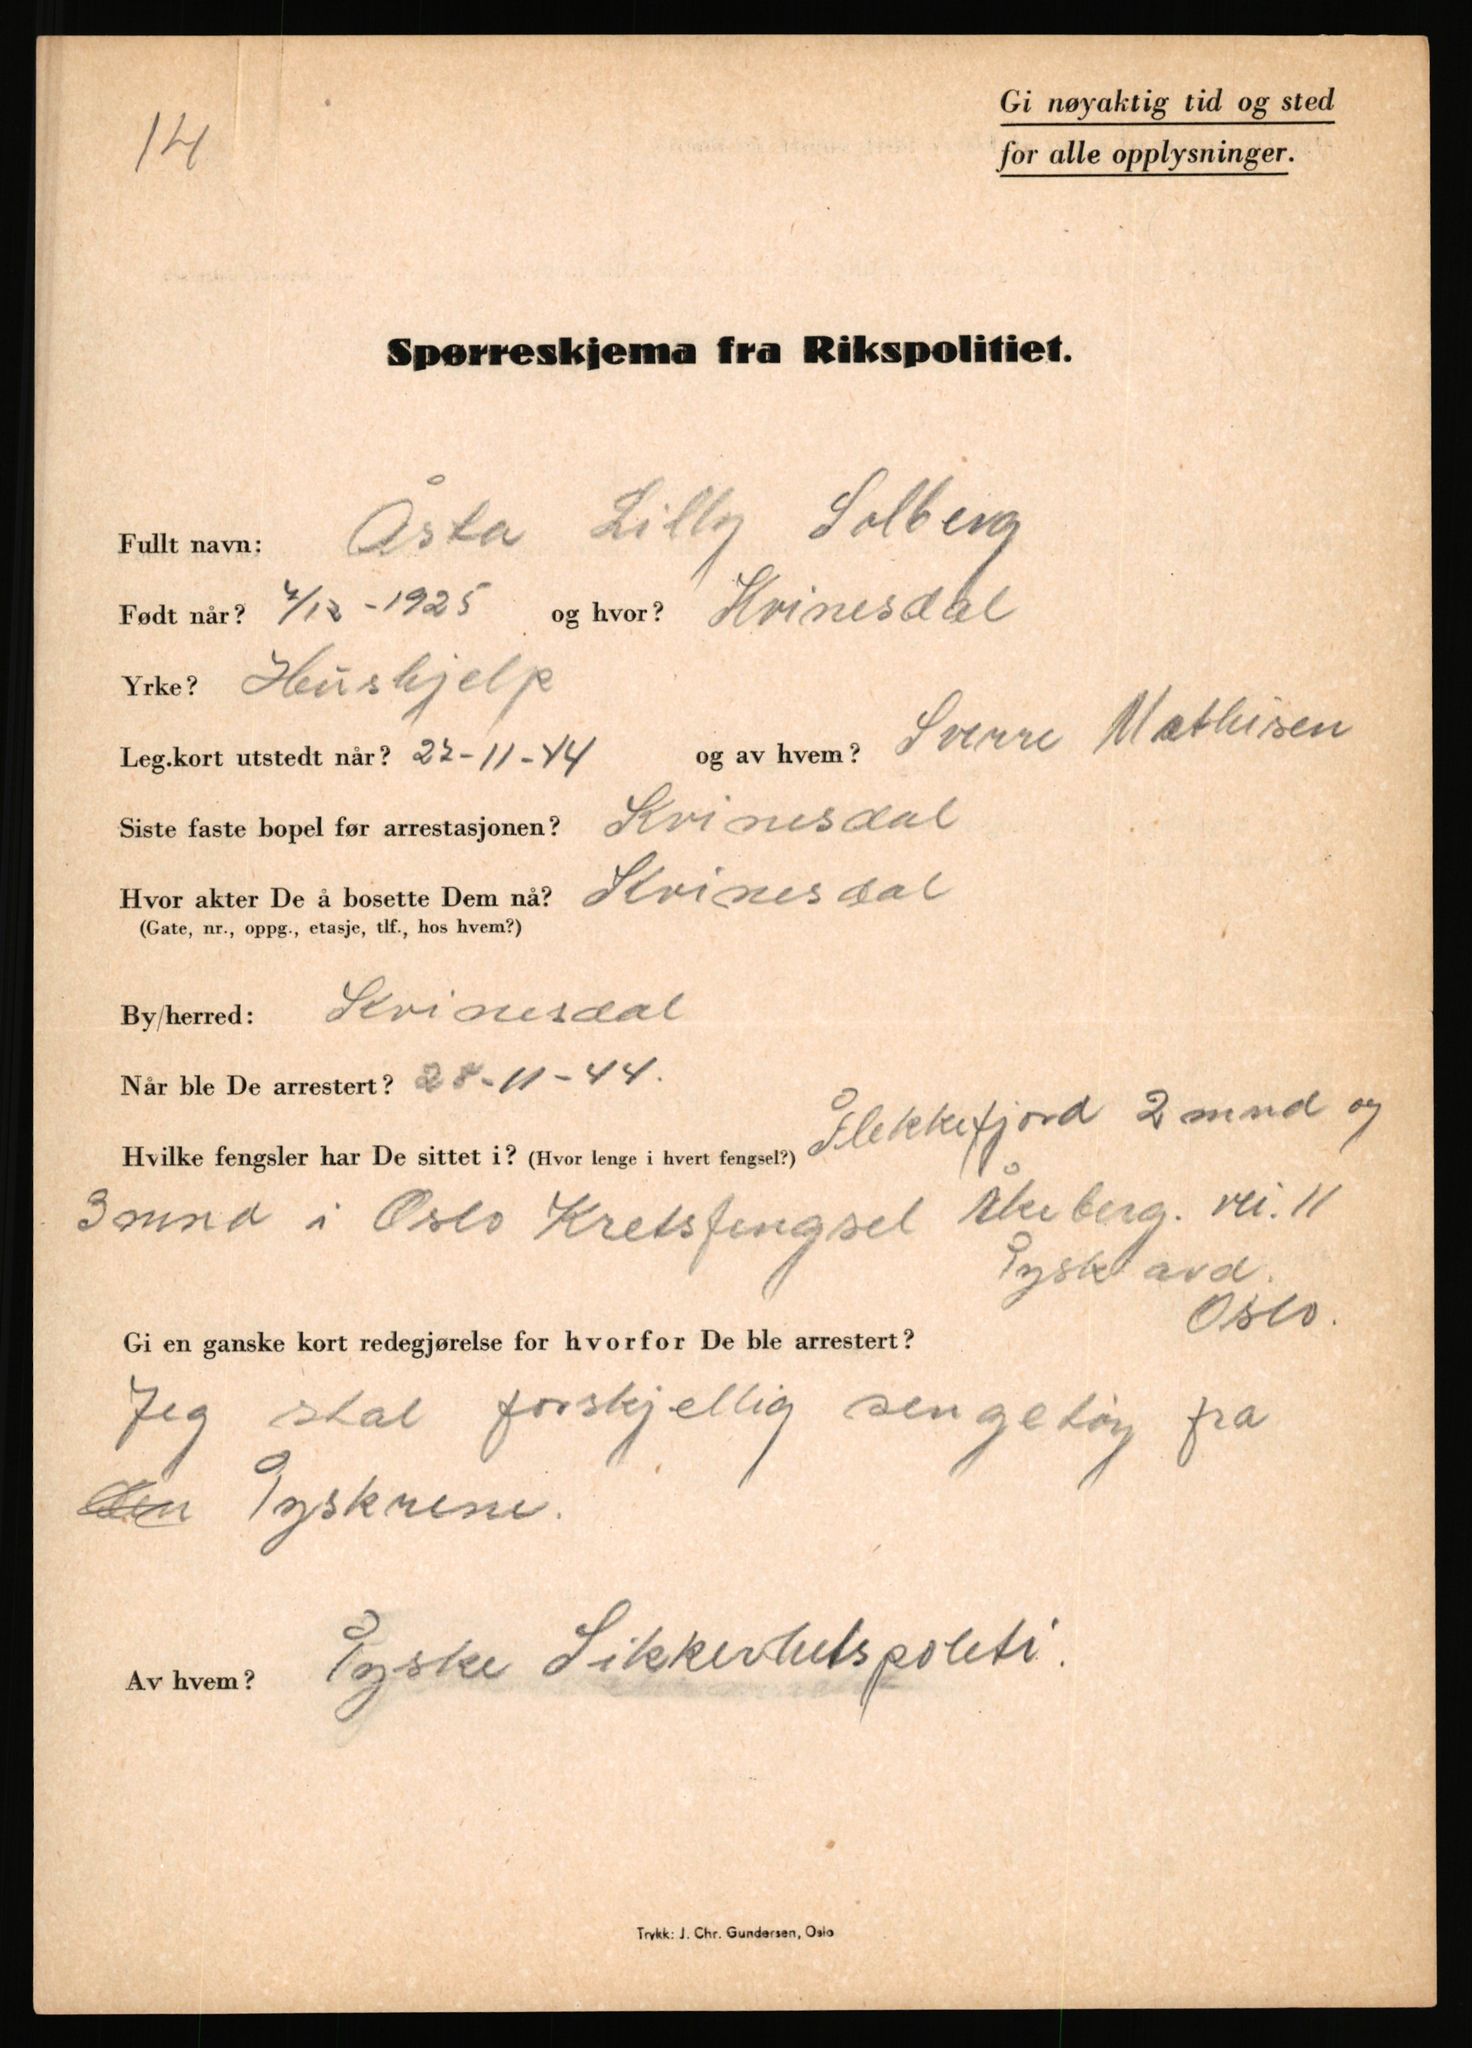 14
Gi nøyaktig tid og sted
for alle opplysninger.
Spørreskjema fra Rikspolitiet.
Fullt navn: Åsta Lilly Solberg
Født når? 4/12 - 1925 og hvor? Kvinesdal
Yrke? Hushjelp
Leg.kort utstedt når? 22-11-44 og av hvem? Sverre Mathisen
Siste faste bopel før arrestasjonen? Kvinesdal
Hvor akter De å bosette Dem nå? Kvinesdal
(Gate, nr., oppg., etasje, tlf., hos hvem?)
By/herred: Kvinesdal
Når ble De arrestert? 28-11-44.
Hvilke fengsler har De sittet i? (Hvor lenge i hvert fengsel?) Flekkefjord 2 mnd og
3 mnd i Oslo Kretsfengsel Åkeberg. vei. 11
Tysk avd.
Oslo.
Gi en ganske kort redegjørelse for hvorfor De ble arrestert?
Jeg stal forskjellig sengetøy fra
den Tyskrene.
Av hvem? Tyske Sikkerhetspoleti.
Trykk: J. Chr. Gundersen, Oslo